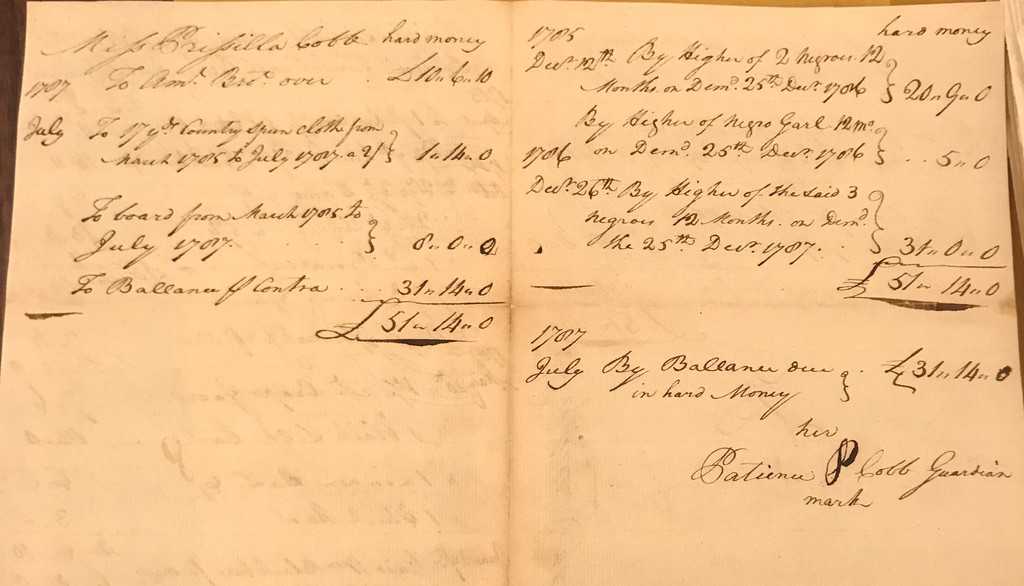 Miss Prissilla Cobb hard money
1787 To Amt. Brt. over . £10 " 6 " 10
July To 17 yds Country spun cloth from
March 1785 to July 1787. a 2/ } 1 " 14 " 0
To board from March 1785 to
July 1787. } 8 " 0 " 0
To Ballance pr Contra . . . 31 " 14 " 0
£ 51 " 14 " 0
1785 hard money
Decr. 12th By Higher of 2 Negroes 12
Months on Demd. 25th Decr. 1786 } 20 " 9 " 0
By Higher of Negro Garl 12 mo.
1786 on Demd. 25th Decr. 1786 } . . 5 " 0
Decr. 26th By Higher of the said 3
negroes 12 Months. on Demd.
the 25th Decr. 1787. } 31 " 0 " 0
£ 51 " 14 " 0
1787
July By Ballance due } . £31 " 14 " 0
in hard Money
her
Patience P Cobb Guardian
mark